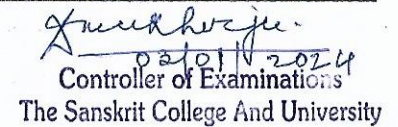 03/01/2024
Controller of Examinations
The Sanskrit College And University